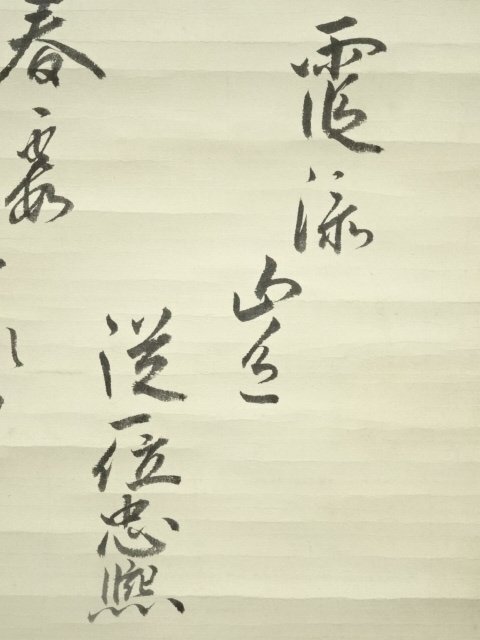 霞添山色
従一位忠煕
春霞